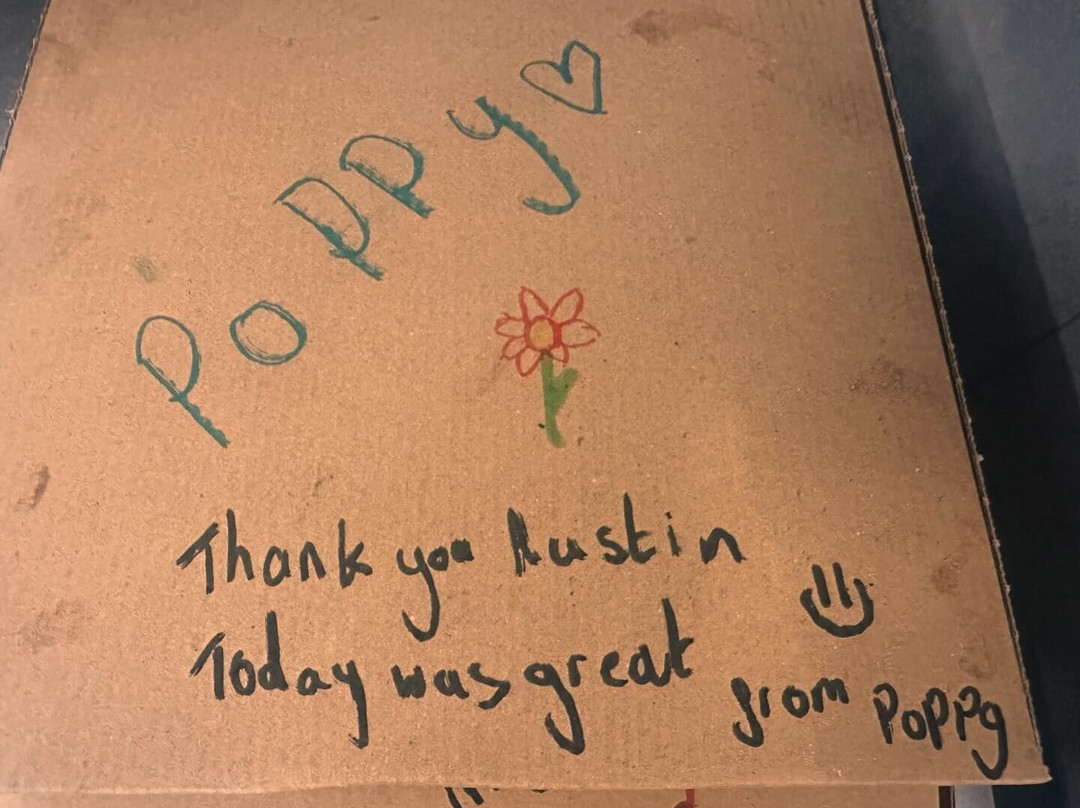 Poppy
Thank you Austin
Today was great
from Poppy